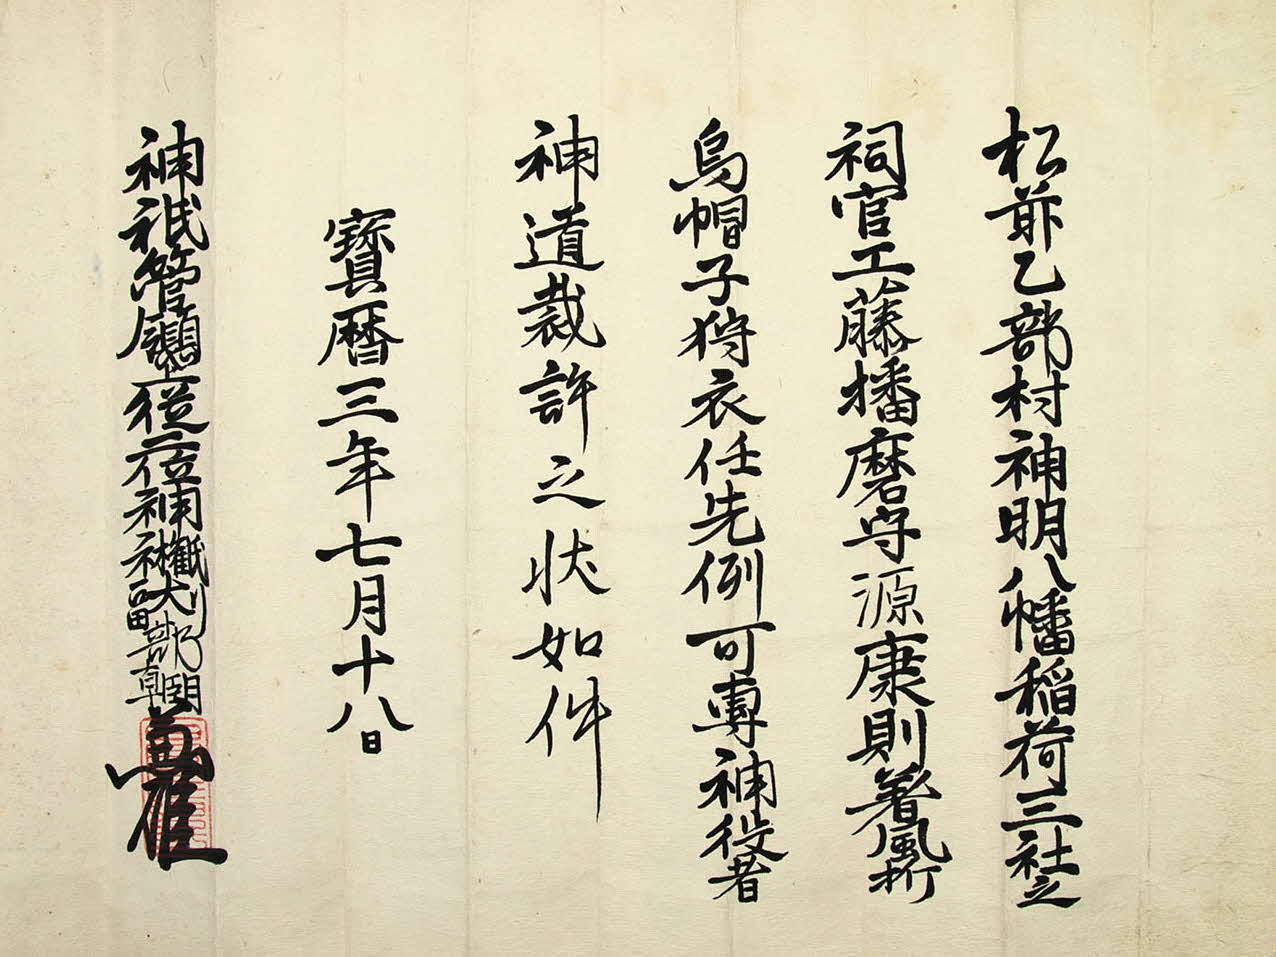 松前乙部村神明八幡稲荷三社之
祠官工藤播磨守源康則著風折
烏帽子狩衣任先例可専神役者
神道裁許之状如件
寶暦三年七月十八日
神祇管領従二位卜部朝臣兼雄